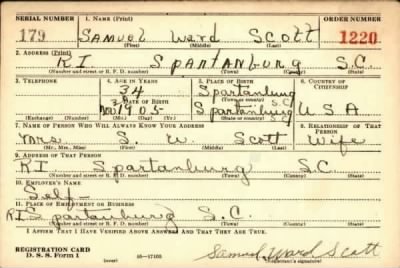 SERIAL NUMBER 1. NAME (Print) ORDER NUMBER
179 SAMUEL Ward Scott 1220
(First) (Middle) (Last)
2. ADDRESS (Print)
R I Spartanburg S.C.
(Number and street or R. F. D. number) (Town) (County) (State)
3. TELEPHONE 4. AGE IN YEARS 5. PLACE OF BIRTH 6. COUNTRY OF CITIZENSHIP
34 Spartanburg
DATE OF BIRTH (Town or county) S.C.
Nov 1905 Spartanburg U S A
(Exchange) (Number) (Mo.) (Day) (Yr.) (State or country)
7. NAME OF PERSON WHO WILL ALWAYS KNOW YOUR ADDRESS 8. RELATIONSHIP OF THAT PERSON
Mrs. S. W. Scott Wife
(Mr., Mrs., Miss) (First) (Middle) (Last)
9. ADDRESS OF THAT PERSON
R I Spartanburg S.C.
(Number and street or R. F. D. number) (Town) (County) (State)
10. EMPLOYER'S NAME
Self-
11. PLACE OF EMPLOYMENT OR BUSINESS
R I Spartanburg S.C.
(Number and street or R. F. D. number) (Town) (County) (State)
I AFFIRM THAT I HAVE VERIFIED ABOVE ANSWERS AND THAT THEY ARE TRUE.
REGISTRATION CARD
D. S. S. Form 1 (over) Samuel Ward Scott
(Registrant's signature)